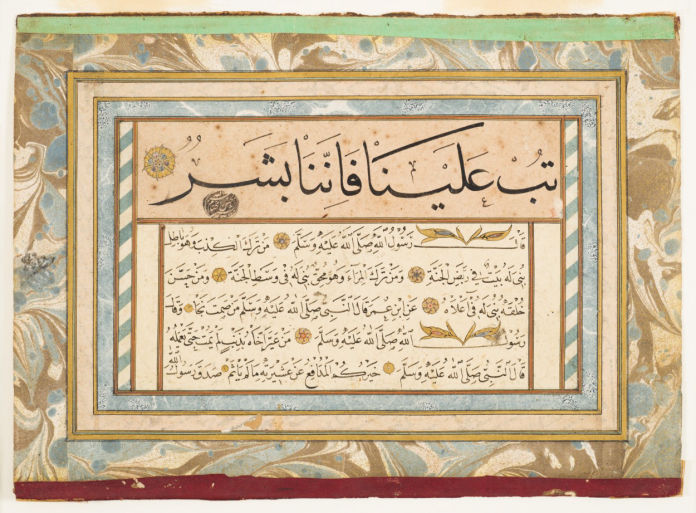 تُبْ عَلَيْنَا فَاِنَّنَا بَشَرُ
قال رسول الله صلى الله عليه وسلم من ترك الكذب وهو باطل
بني له بيت في ربض الجنة ومن ترك المراء وهو محق بني له في وسط الجنة ومن حسن
خلقه بني له في اعلاه عن ابن عمر قال النبي صلى الله عليه وسلم من صمت نجا وقال
رسول الله صلى الله عليه وسلم من عير اخاه بذنب لم يمت حتى يعمله
قال النبي صلى الله عليه وسلم خيركم المدافع عن عشيرته ما لم ياثم صدق رسول الله